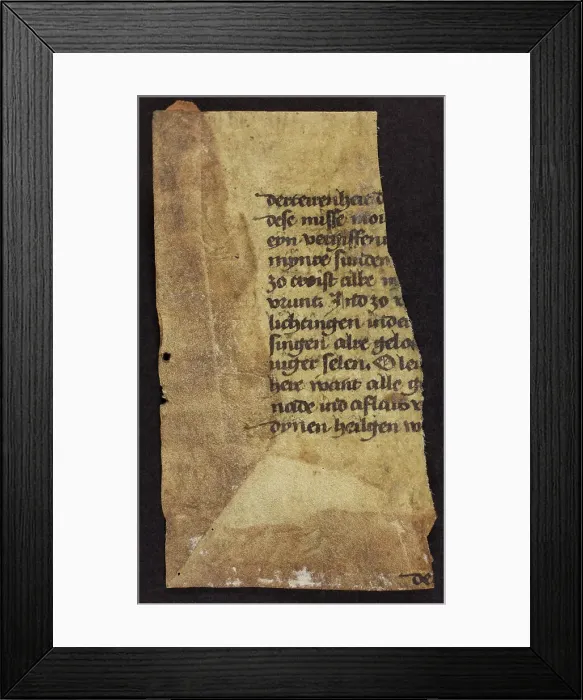 dese misse mo
eyn vergiffeni
mynre sunden
zo troist alle m
vrunt. Ind zo v
lichtingen inde
singen alre gelo
niger selen. O lei
here want alle g
nade ind aflais v
dynen heilgen w
de